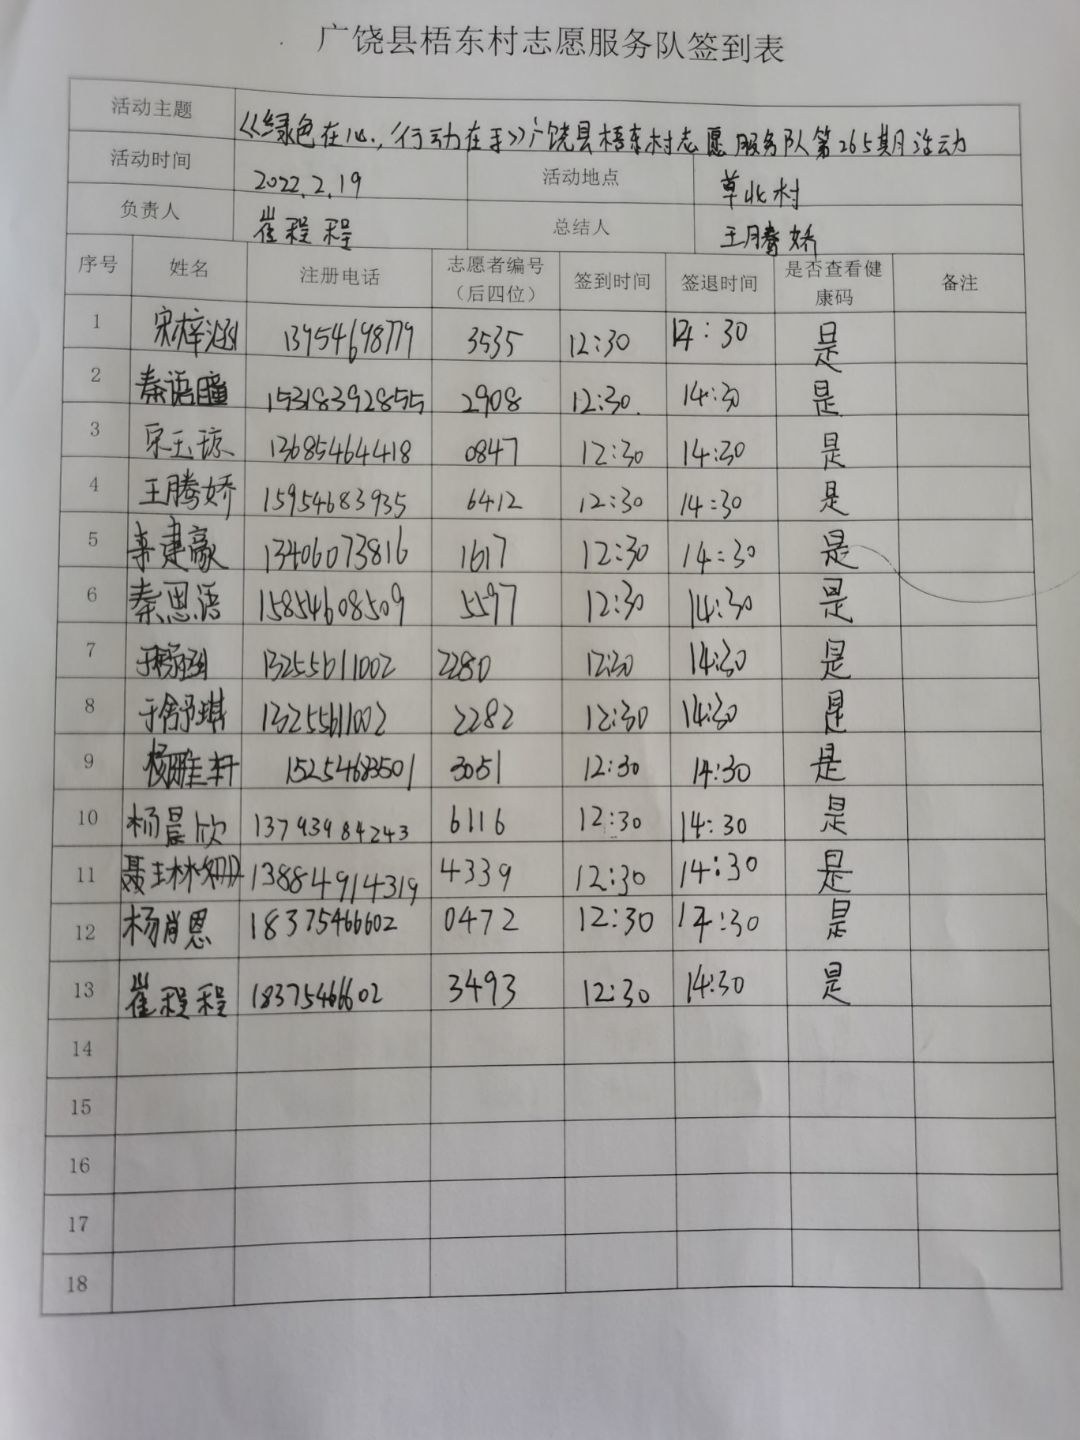 广饶县梧东村志愿服务队签到表
活动主题 《绿色在心,行动在手》广饶县梧东村志愿服务队第265期活动
活动时间 2022.2.19 活动地点 草北村
负责人 崔程程 总结人 王腾娇
序号 姓名 注册电话 志愿者编号（后四位） 签到时间 签退时间 是否查看健康码 备注
1 宋梓涵 13954698779 3535 12:30 14:30 是
2 秦语瞳 15318392855 2908 12:30 14:30 是
3 宋玉琼 13685464418 0847 12:30 14:30 是
4 王腾娇 15954683935 6412 12:30 14:30 是
5 建豪 13406073816 1617 12:30 14:30 是
6 秦思语 15854608509 5597 12:30 14:30 是
7 于 13255611002 2280 12:30 14:30 是
8 于舒琪 13255611002 2282 12:30 14:30 是
9 杨雅轩 15254683501 3051 12:30 14:30 是
10 杨晨欣 13793984243 6116 12:30 14:30 是
11 聂 13884914319 4339 12:30 14:30 是
12 杨肖恩 18375466602 0472 12:30 14:30 是
13 崔程程 18375466602 3493 12:30 14:30 是
14
15
16
17
18